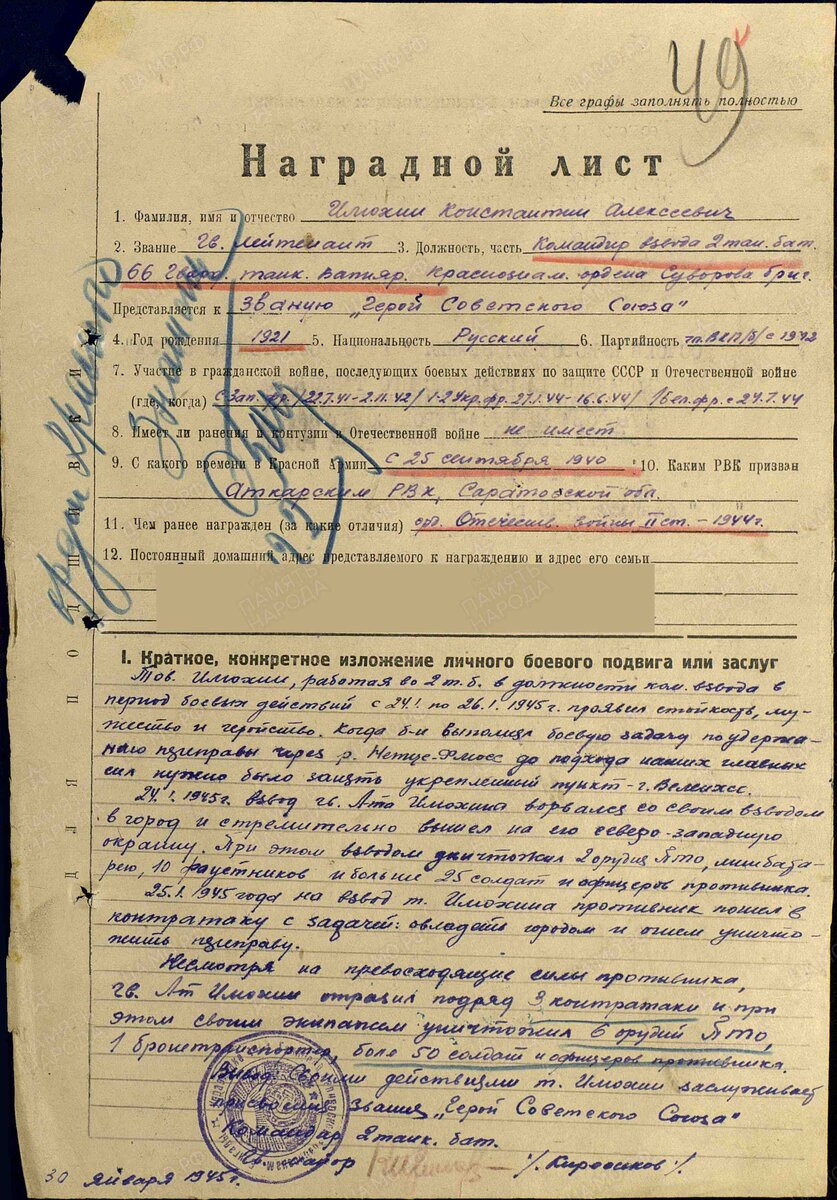 49
Все графы заполнять полностью
Наградной лист
1. Фамилия, имя и отчество Имохин Константин Алексеевич
2. Звание Гв. лейтенант 3. Должность, часть Командир взвода 2 тан. бат.
66 Гвард. танк. Вапняр. Краснознам. ордена Суворова бриг.
Представляется к званию „Герой Советского Союза"
4. Год рождения 1921 5. Национальность Русский 6. Партийность чл. ВКП/б/ с 1942
7. Участие в гражданской войне, последующих боевых действиях по защите СССР и Отечественной войне
(где, когда) С-Зап. фр. /22.7.41-2.11.42/ 1-2 Укр. фр. 27.1.44-16.6.44/ 1 Бел. фр. с 24.7.44
8. Имеет ли ранения и контузии в Отечественной войне не имеет
9. С какого времени в Красной Армии С 25 сентября 1940 10. Каким РВК призван
Аткарским РВК, Саратовской обл.
11. Чем ранее награжден (за какие отличия) орд. Отечеств. войны II ст. - 1944 г.
12. Постоянный домашний адрес представляемого к награждению и адрес его семьи
орден Красного
Знамени
ДЛЯ ПОДШИВКИ
I. Краткое, конкретное изложение личного боевого подвига или заслуг
Тов. Имохин, работая во 2 т.б. в должности ком. взвода в
период боевых действий с 24.1 по 26.1.1945 г. проявил стойкость, му-
жество и геройство. Когда б-н выполнял боевую задачу по удержа-
нию переправы через р. Нетце-Флюсс до подхода наших главных
сил нужно было занять укрепленный пункт - г.
24.1.1945 г. взвод гв. л-та Имохина ворвался со своим взводом
в город и стремительно вышел на его северо-западную
окраину. При этом взводом уничтожил 2 орудия ПТО, минбата-
рею, 10 фаустников и больше 25 солдат и офицеров противника.
25.1.1945 года на взвод т. Имохина противник пошел в
контратаку с задачей: овладеть городом и огнем уничто-
жить переправу.
Несмотря на превосходящие силы противника,
гв. л-т Имохин отразил подряд 3 контратаки и при
этом своим экипажем уничтожил 6 орудий ПТО,
1 бронетранспортер, боле 50 солдат и офицеров противника.
Вывод: Своими действиями т. Имохин заслуживает
присвоения звания „Герой Советского Союза"
Командир 2 танк. бат.
Гв. майор
30 января 1945 г.